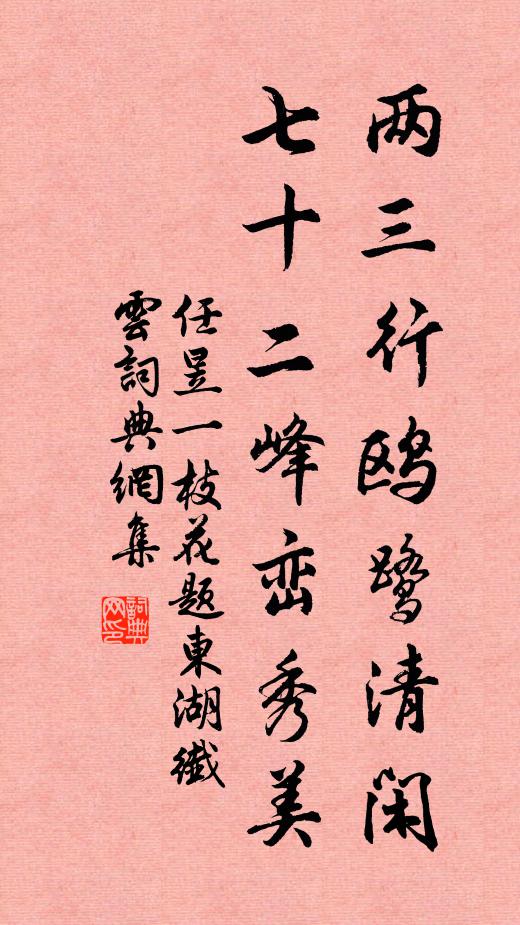 两三行鸥鹭清闲
七十二峰峦秀美
任昱一枝花题東湖纖
雲詞典網集
詞典网印